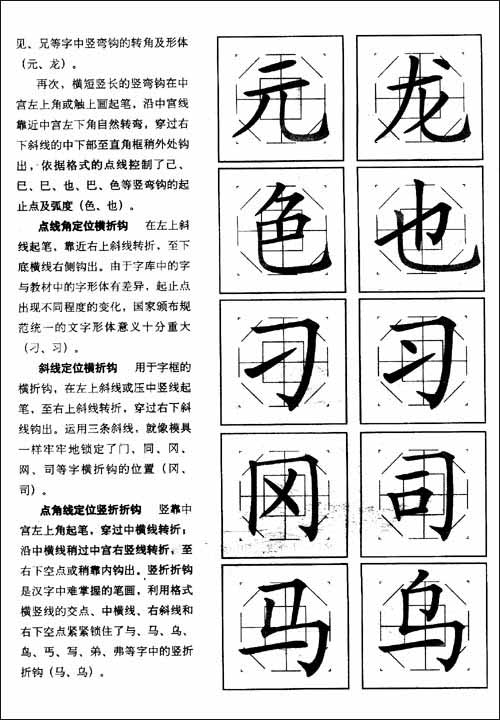 见、兄等字中竖弯钩的转角及形体
（元、龙）。
再次，横短竖长的竖弯钩在中
宫左上角或触上画起笔，沿中宫线
靠近中宫左下角自然转弯，穿过右
下斜线的中下部至直角框稍外处钩
出，依据格式的点线控制了己、
巳、巳、也、巴、色等竖弯钩的起
止点及弧度（色、也）。
点线角定位横折钩 在左上斜
线起笔，靠近右上斜线转折，至下
底横线右侧钩出。由于字库中的字
与教材中的字形体有差异，起止点
出现不同程度的变化，国家颁布规
范统一的文字形体意义十分重大
（刁、习）。
斜线定位横折钩 用于字框的
横折钩，在左上斜线或压中竖线起
笔，至右上斜线转折，穿过右下斜
线钩出。运用三条斜线，就像模具
一样牢牢地锁定了门、同、冈、
网、司等字横折钩的位置（冈、
司）。
点角线定位竖折折钩 竖靠中
宫左上角起笔，穿过中横线转折；
沿中横线稍过中宫右竖线转折，至
右下空点或稍靠内钩出。竖折折钩
是汉字中难掌握的笔画，利用格式
横竖线的交点、中横线、右斜线和
右下空点紧紧锁住了与、马、乌、
鸟、丐、写、弟、弗等字中的竖折
折钩（马、乌）。
元 龙
色 也
刁 习
冈 司
马 乌